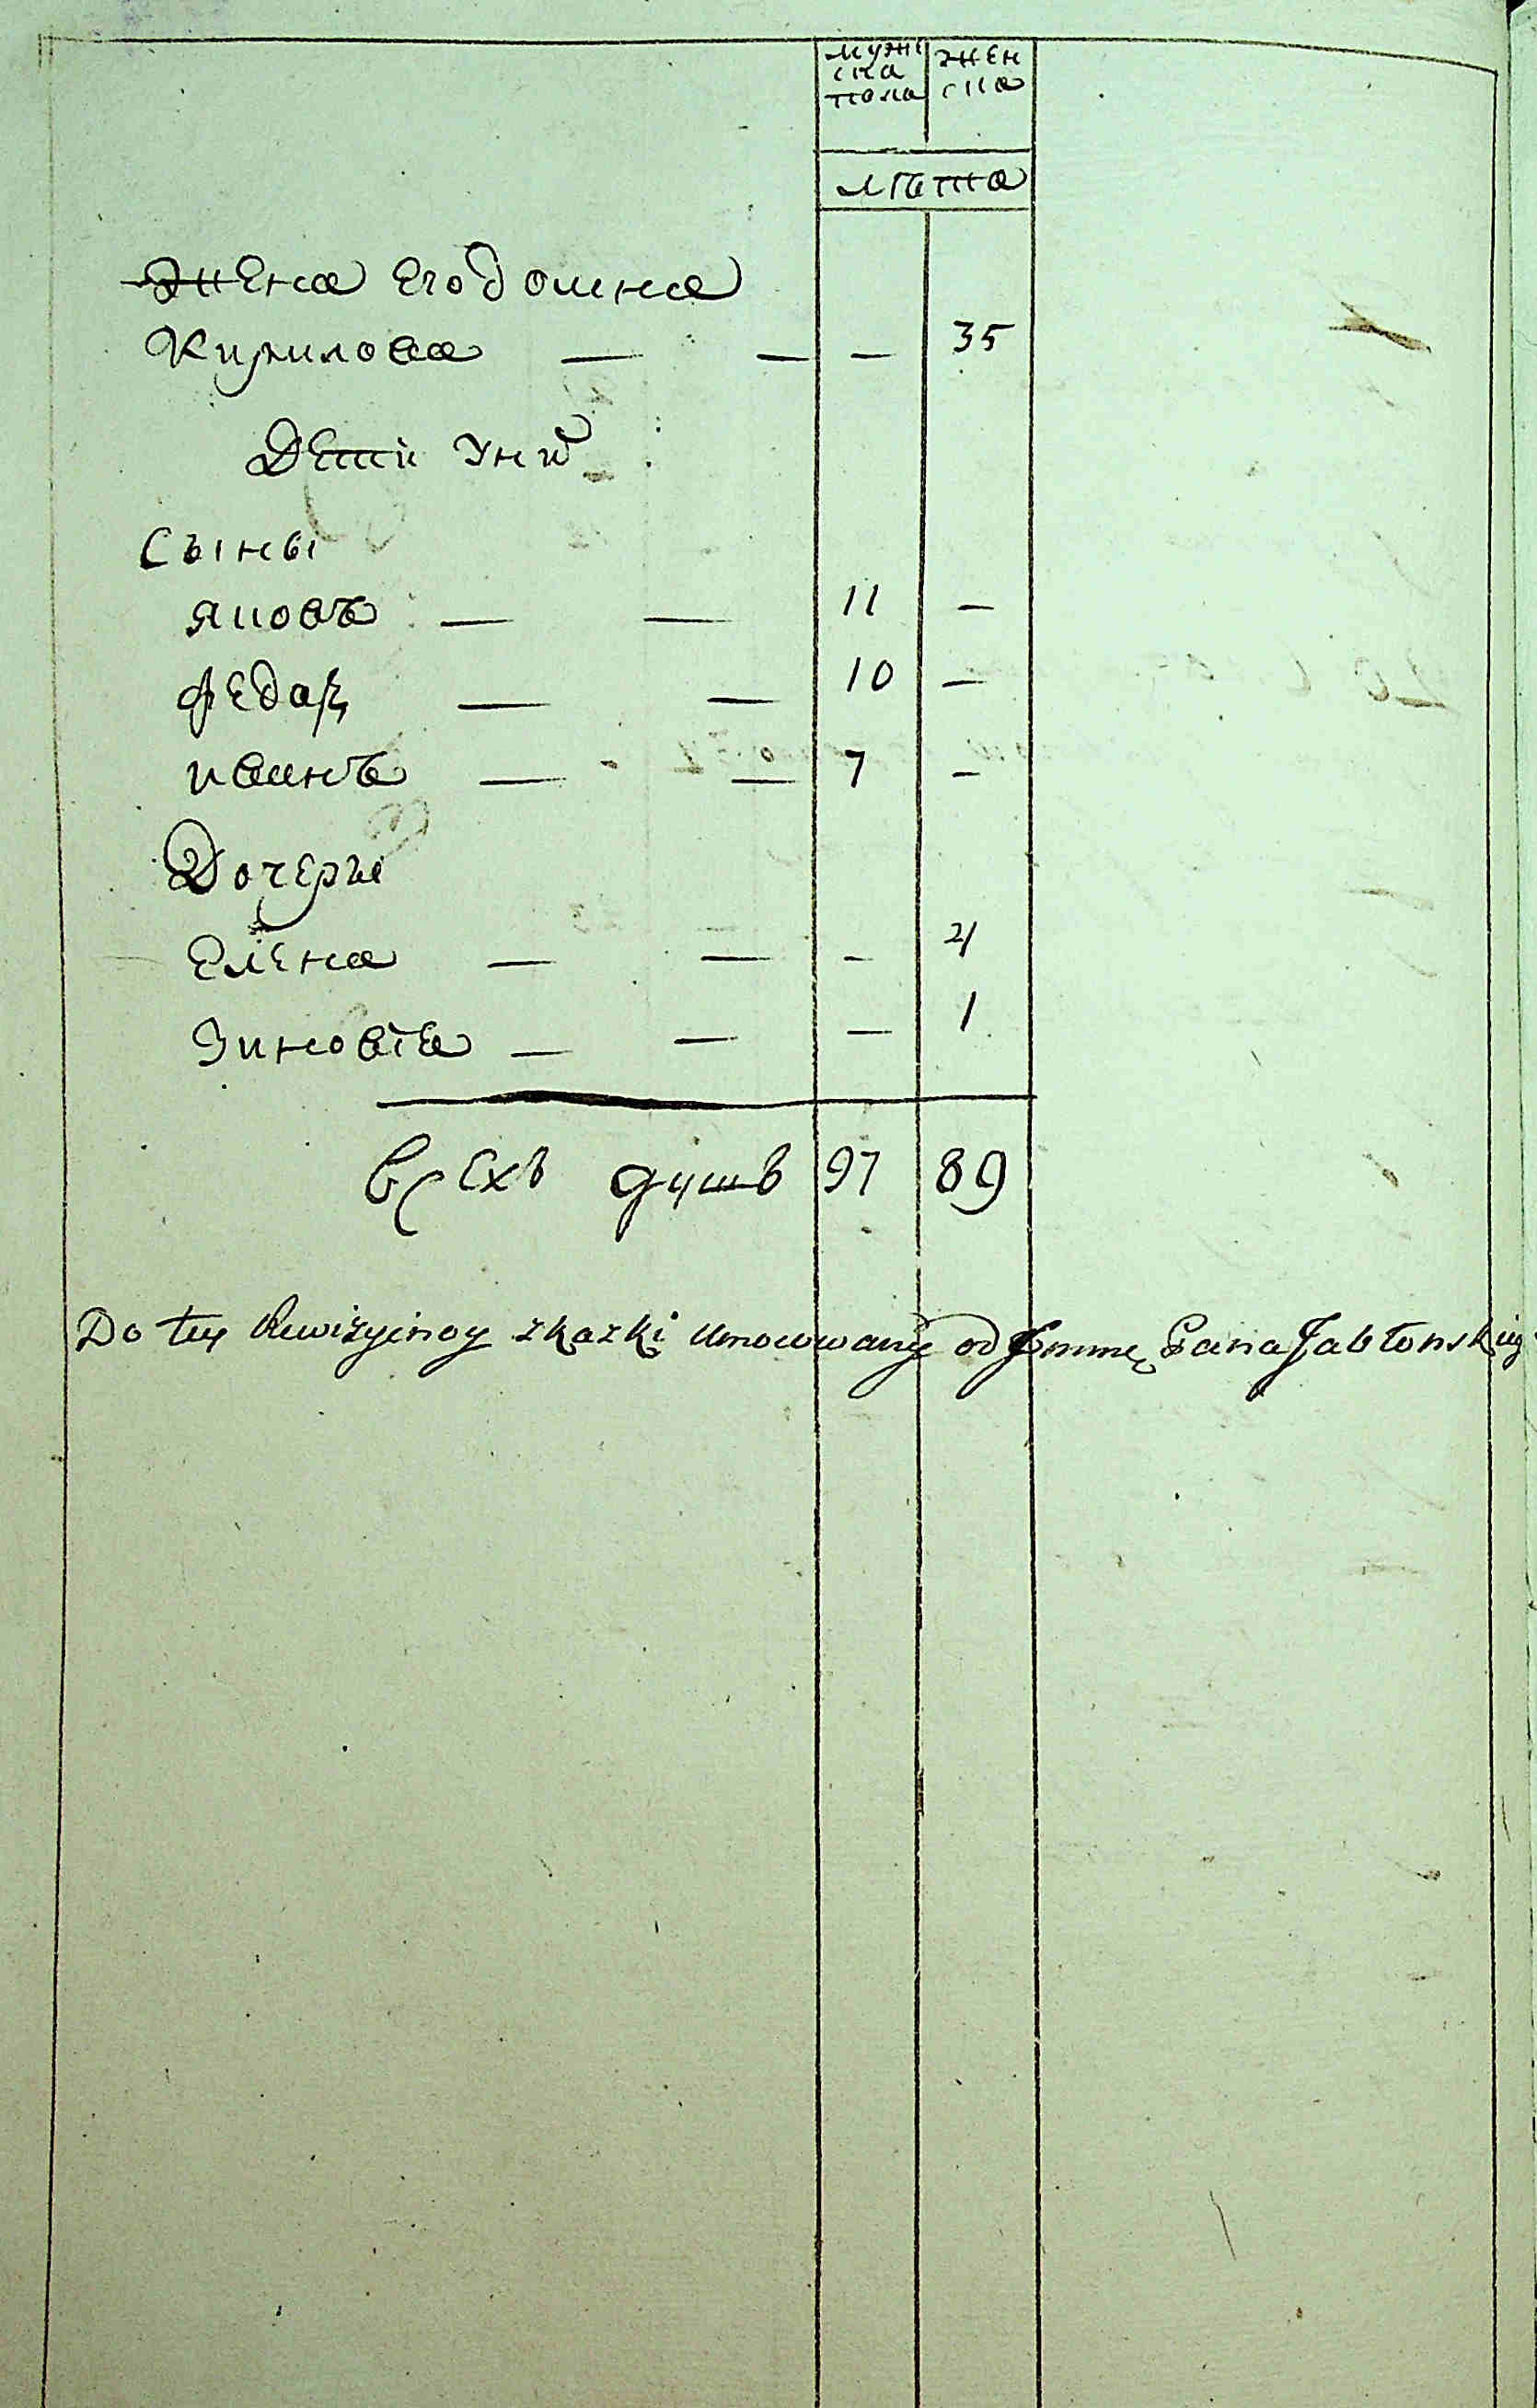 мужс жен
ска ска
пола
лѣта
Жена его домна
Кирилова — — — 35
Дети у ниӑ
Сыны
яковъ — — 11 —
федаръ — — 10 —
иванъ — — 7 —
Дочеры
Елена — — — 4
Зиновiя — — — 1
всехъ душъ 97 89
Do tey Rewizyinoy skazki umocowany od Jmme Pana Jabłonskieg